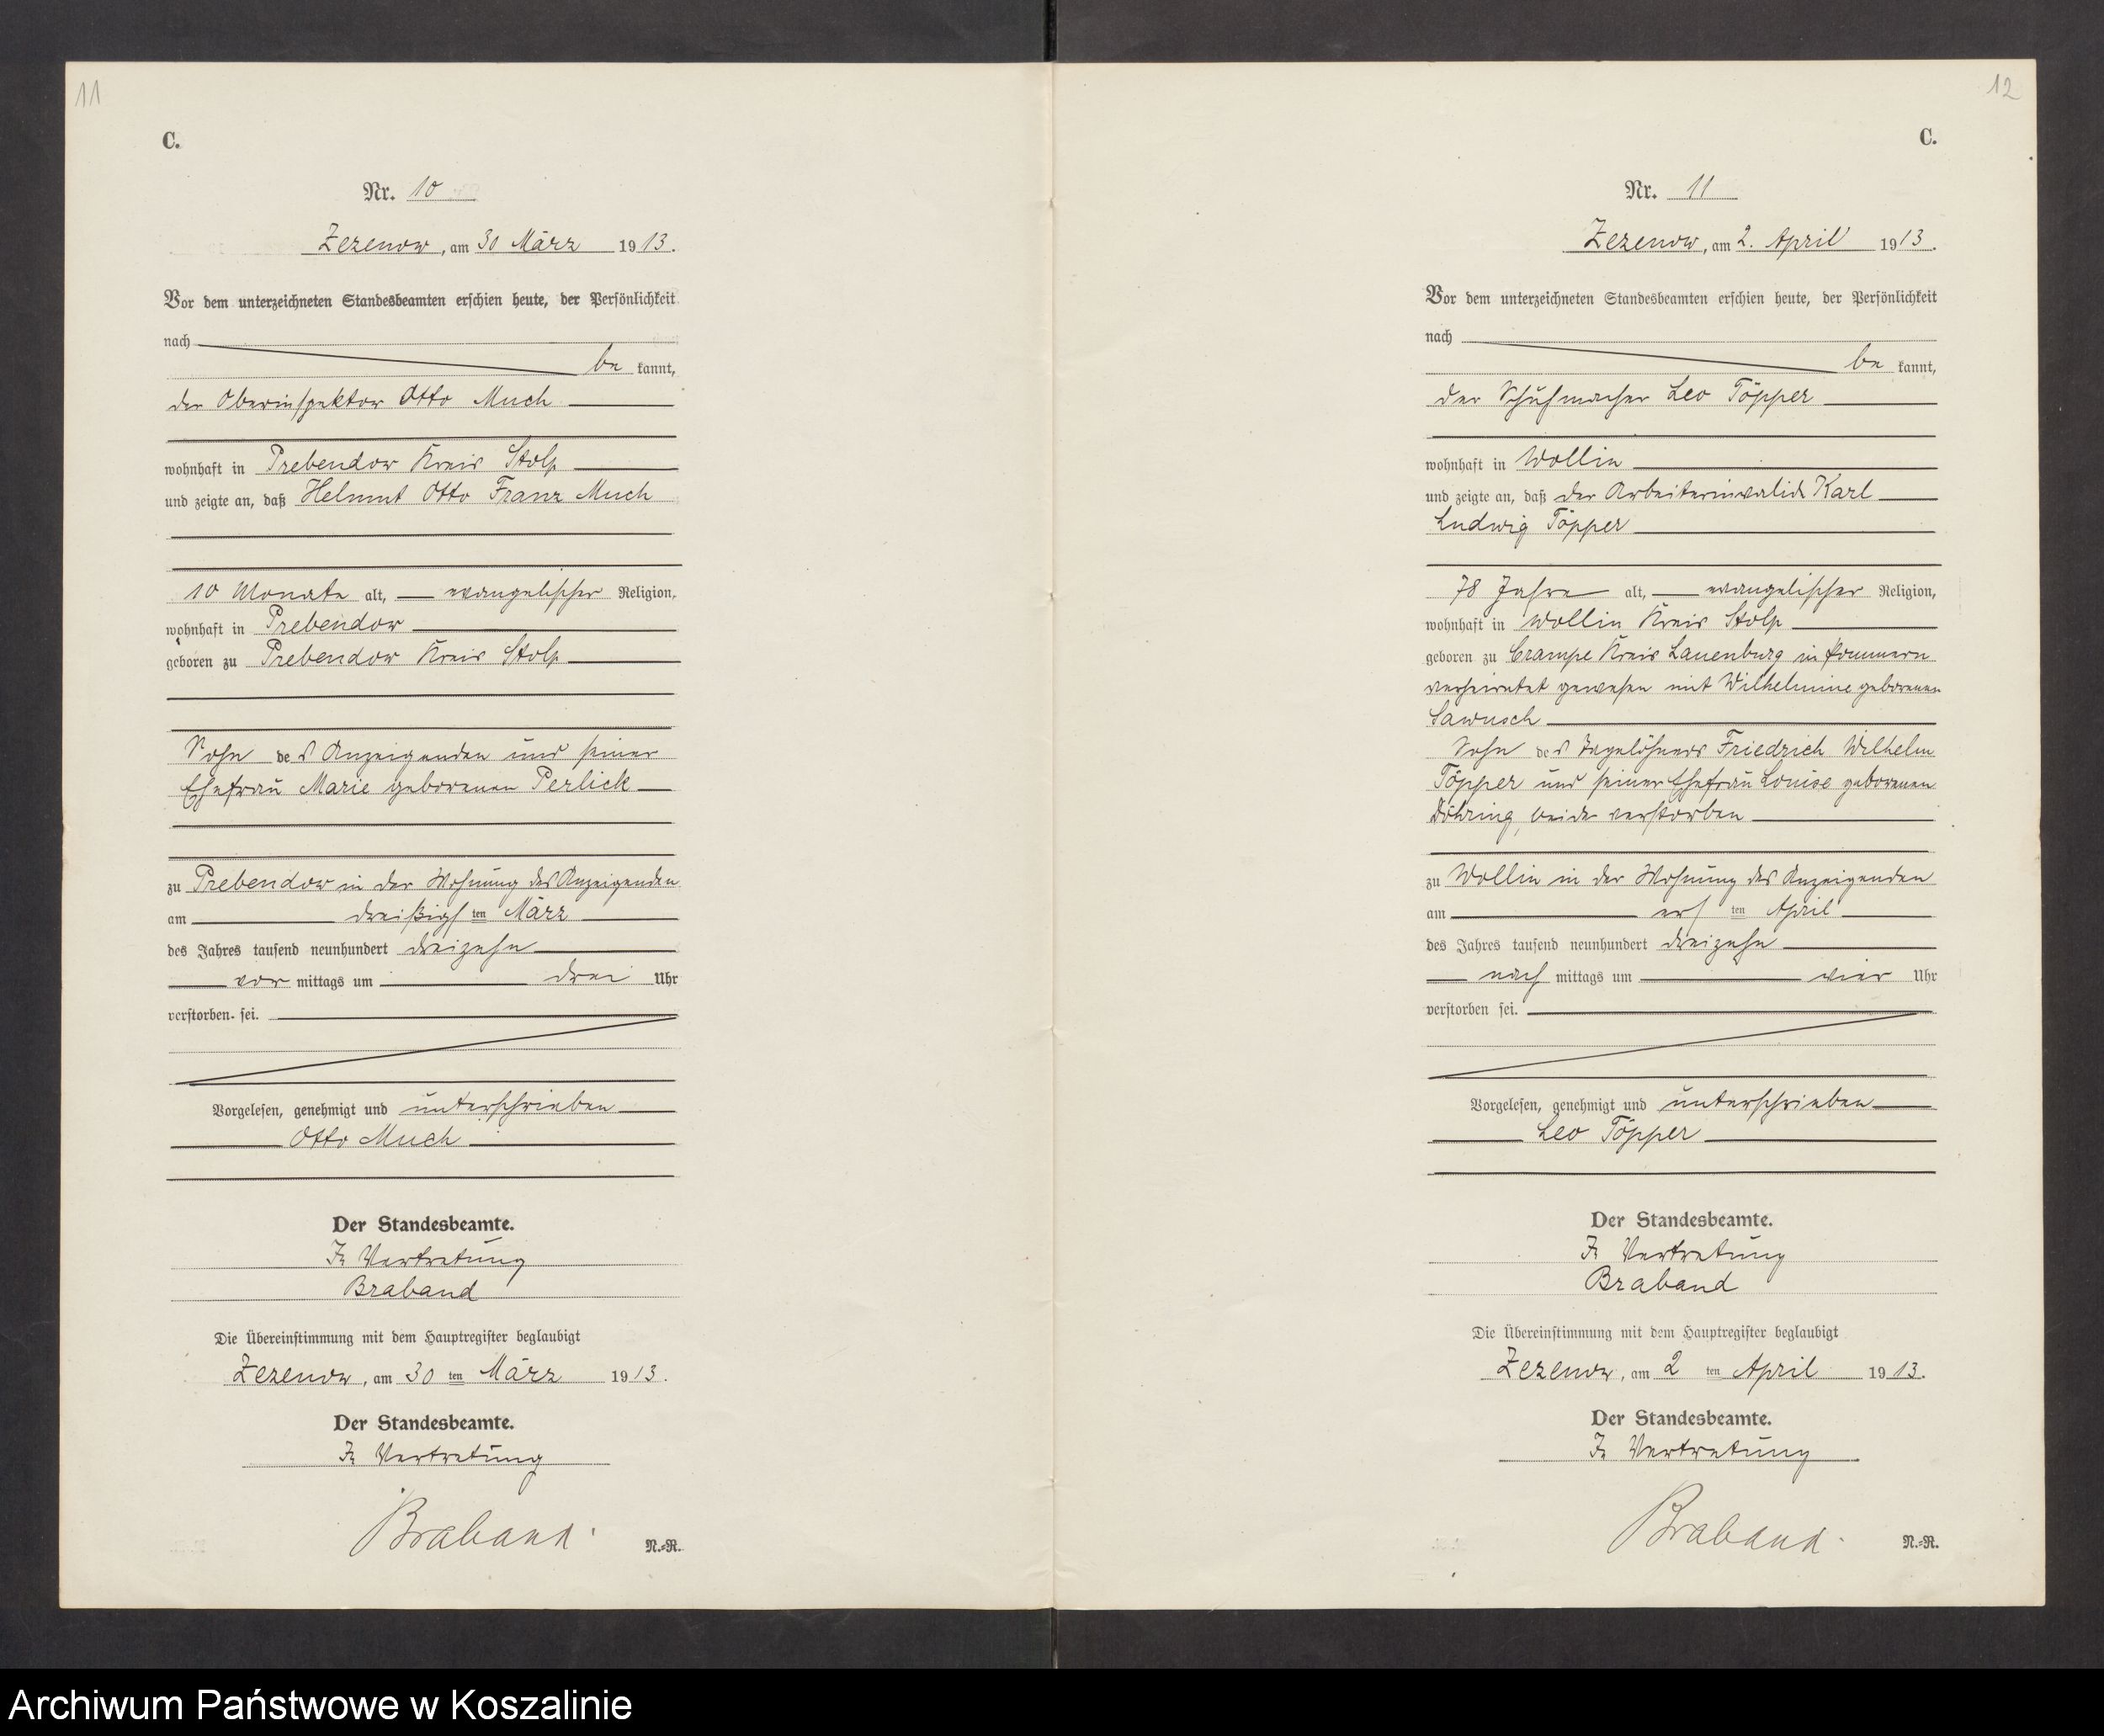 11
C.
Nr. 10
Zezenow, am 30 März 1913.
Vor dem unterzeichneten Standesbeamten erschien heute, der Persönlichkeit
nach
be kannt,
der Oberinspektor Otto Much
wohnhaft in Prebendow Kreis Stolp
und zeigte an, daß Helmut Otto Franz Much
10 Monate alt, evangelischer Religion,
wohnhaft in Prebendow
geboren zu Prebendow Kreis Stolp
Sohn des Anzeigenden und seiner
Ehefrau Marie geborenen Perlick
zu Prebendow in der Wohnung des Anzeigenden
am dreißigsten März
des Jahres tausend neunhundert dreizehn
vor mittags um drei Uhr
verstorben sei.
Vorgelesen, genehmigt und unterschrieben
Otto Much
Der Standesbeamte.
In Vertretung
Braband
Die Übereinstimmung mit dem Hauptregister beglaubigt
Zezenow, am 30 ten März 1913.
Der Standesbeamte.
In Vertretung
Braband.
N.-R.
12
C.
Nr. 11
Zezenow, am 2. April 1913.
Vor dem unterzeichneten Standesbeamten erschien heute, der Persönlichkeit
nach
be kannt,
der Schuhmacher Leo Töpper
wohnhaft in Wollin
und zeigte an, daß der Arbeiterinvalide Karl
Ludwig Töpper
78 Jahre alt, evangelischer Religion,
wohnhaft in Wollin Kreis Stolp
geboren zu Crampe Kreis Lauenburg in Pommern
verheiratet gewesen mit Wilhelmine geborenen
Sawusch
Sohn des Tagelöhners Friedrich Wilhelm
Töpper und seiner Ehefrau Louise geborenen
Döhring, beide verstorben
zu Wollin in der Wohnung des Anzeigenden
am ersten April
des Jahres tausend neunhundert dreizehn
nach mittags um vier Uhr
verstorben sei.
Vorgelesen, genehmigt und unterschrieben
Leo Töpper
Der Standesbeamte.
In Vertretung
Braband
Die Übereinstimmung mit dem Hauptregister beglaubigt
Zezenow, am 2 ten April 1913.
Der Standesbeamte.
In Vertretung
Braband.
N.-R.
Archiwum Państwowe w Koszalinie